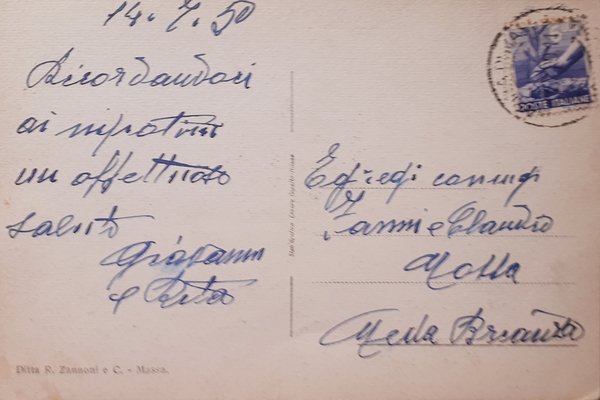 14. 7. 50
Ricordandoci
ai nipotini
un affettuoso
saluto
Giovanni
e Rita
POSTE ITALIANE
Egregi coniugi
Fanni e Claudio
Motta
Meda Brianza
Ditta R. Zannoni e C. - Massa.